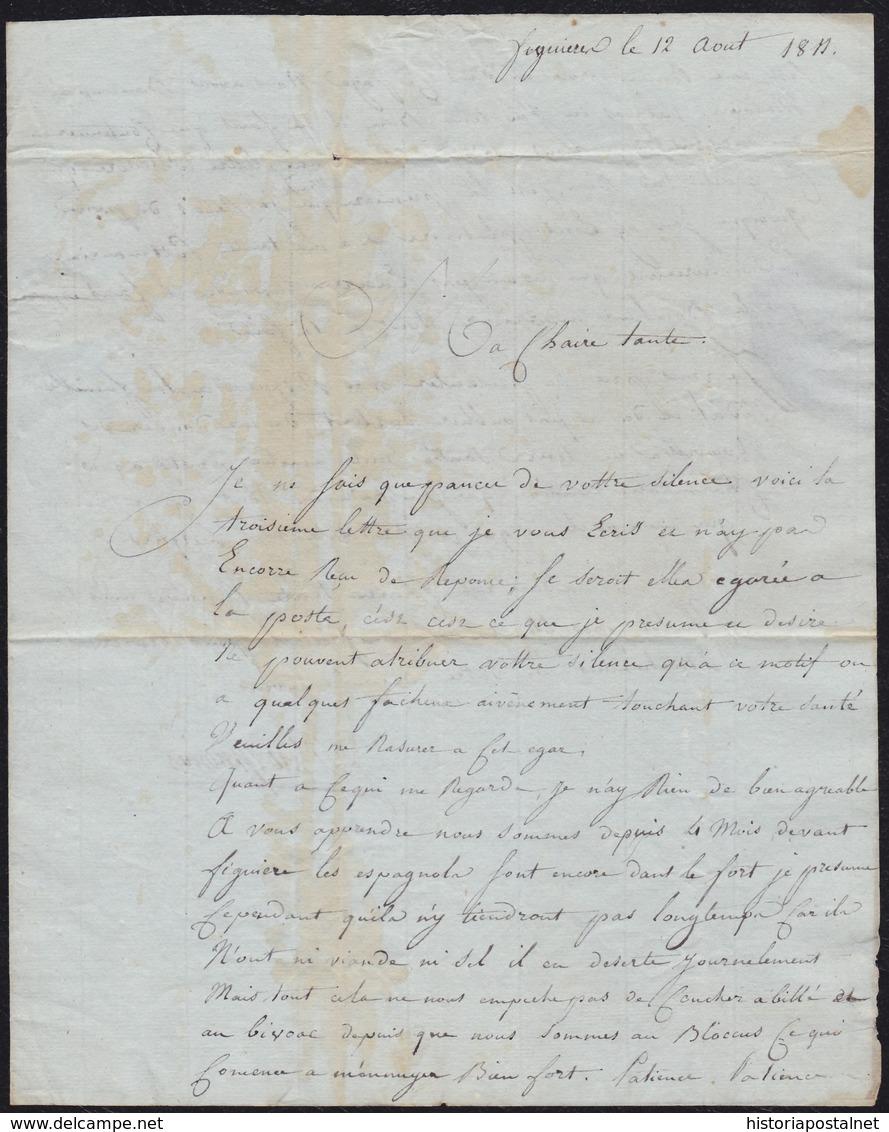 figuieres le 12 Aout 1811.
Ma Chaire tante.
Je ne sais que pancer de vottre silence voici la
troisieme lettre que je vous Ecris et n'ay pas
Encorre Reçu de Reponce; Se seroit elles egarée a
la poste, c'est ce que je presume et desire
Ne pouvent atribuer vottre silence qu'à ce motif ou
a quelques facheux aivènement touchant votre santé
Veuilles me Rasurer a Cet egar,
Quant a Cequi me Regarde, je n'ay Rien de bien agreable
A vous apprendre nous sommes depuis 4 Mois devant
figuiere les espagnols sont encore dant le fort je presume
Cependant qu'ils n'y tiendront pas longtemps Car ils
N'ont ni viande ni sel il en deserte journelement
Mais tout cela ne nous empeche pas de Coucher abillé et
au bivoac depuis que nous sommes au Bloccus Ce qui
Comence a m'énnuyer Bien fort. Patience Patience
historiapostalnet
historiapostalnet